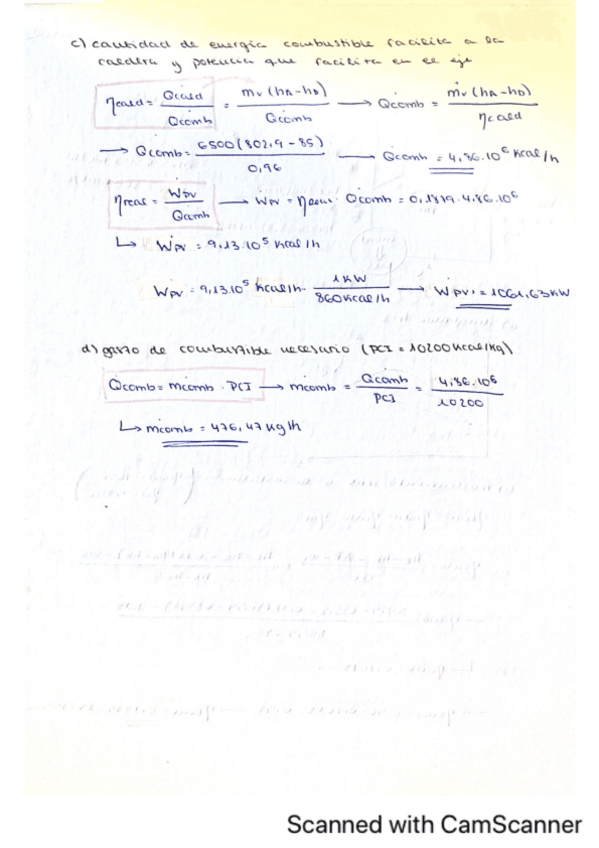 c) cantidad de energia combustible facilita a la
caldera y potencia que facilita en el eje
ηcald = Q̇cald / Q̇comb = ṁv (hA-hD) / Q̇comb → Q̇comb = ṁv (hA-hD) / ηcald
→ Q̇comb = 6500 (802,9 - 85) / 0,96 → Q̇comb = 4,86·10⁶ Kcal/h
ηreal = Ẇpv / Q̇comb → Ẇpv = · Q̇comb = 0,1879·4,86·10⁶
↳ Ẇpv = 9,13·10⁵ Kcal/h
Ẇpv = 9,13·10⁵ Kcal/h · 1KW / 860Kcal/h → Ẇpv = 1061,63KW
d) gasto de combustible necesario (PCI = 10200Kcal/Kg)
Q̇comb = ṁcomb · PCI → ṁcomb = Q̇comb / PCI = 4,86·10⁶ / 10200
↳ ṁcomb = 476,47 Kg/h
Scanned with CamScanner